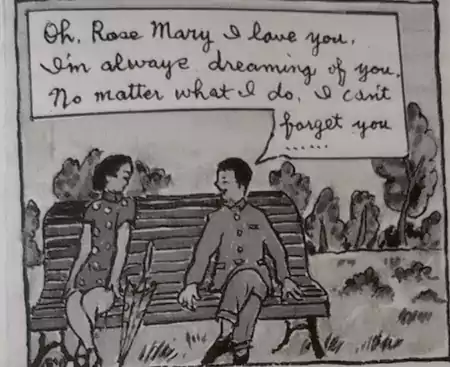 Oh, Rose Mary I love you.
I'm always dreaming of you.
No matter what I do, I can't
forget you
......